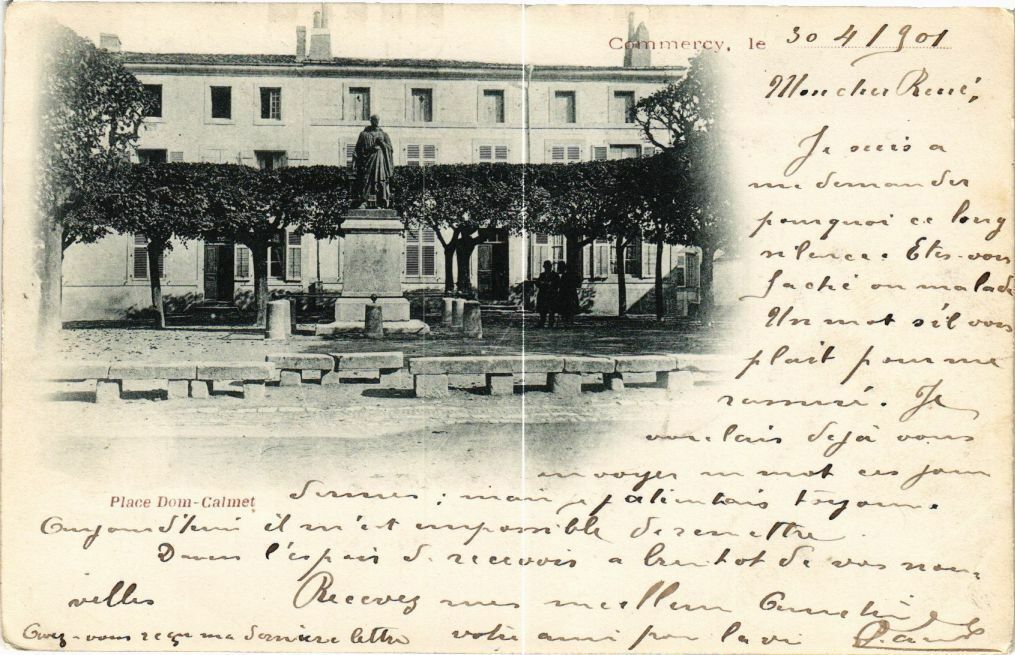 Commercy, le 30 4/901
Mon cher René,
Je suis a
me demander
pourquoi ce long
silence. Etes-vous
faché ou malade
Un mot s'il vous
plait pour me
rassuré. Je
voulais dejà vous
envoyer un mot ces jours
derniers ; mais, patientais toujours.
Place Dom-Calmet
Aujourd'hui il m'est impossible de remettre.
Dans l'espoir de recevoir a bientot de vos nou-
velles Recevez mes meilleurs Amitiés
Avez-vous reçu ma dernière lettre votre ami pour la vie